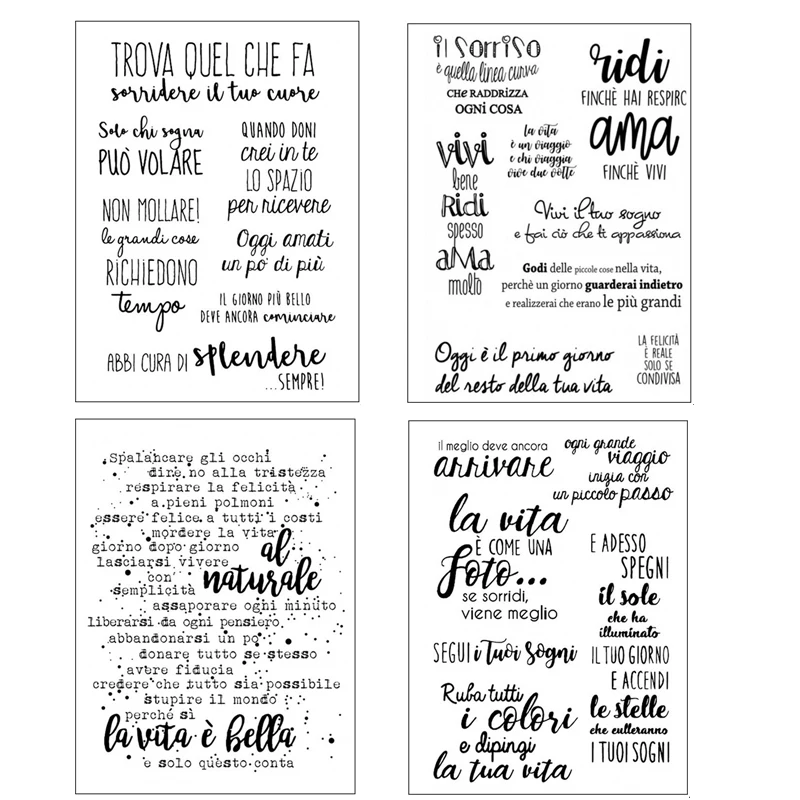 TROVA QUEL CHE FA
sorridere il tuo cuore
Solo chi sogna
PUÒ VOLARE
QUANDO DONI
crei in te
LO SPAZIO
per ricevere
NON MOLLARE!
le grandi cose
RICHIEDONO
tempo
Oggi amati
un po' di più
IL GIORNO PIÙ BELLO
DEVE ANCORA cominciare
ABBI CURA DI splendere
...SEMPRE!
il SORRISO
è quella linea curva
CHE RADDRIZZA
OGNI COSA
ridi
FINCHÈ HAI RESPIRO
ama
FINCHÈ VIVI
vivi
bene
Ridi
spesso
aMa
molto
la vita
è un viaggio
e chi viaggia
vive due volte
Vivi il tuo sogno
e fai ciò che ti appassiona
Godi delle piccole cose nella vita,
perchè un giorno guarderai indietro
e realizzerai che erano le più grandi
Oggi è il primo giorno
del resto della tua vita
LA FELICITÀ
È REALE
SOLO SE
CONDIVISA
Spalancare gli occhi
dire no alla tristezza
respirare la felicità
a pieni polmoni
essere felice a tutti i costi
mordere la vita
giorno dopo giorno
lasciarsi vivere
con
semplicità
al
naturale
assaporare ogni minuto
liberarsi da ogni pensiero
abbandonarsi un po'
donare tutto se stesso
avere fiducia
credere che tutto sia possibile
stupire il mondo
perché sì
la vita è bella
e solo questo conta
il meglio deve ancora
arrivare
ogni grande
viaggio
inizia con
un piccolo passo
la vita
È COME UNA
foto...
se sorridi,
viene meglio
SEGUI i Tuoi Sogni
Ruba tutti
i colori
e dipingi
la tua vita
E ADESSO
SPEGNI
il sole
che ha
illuminato
IL TUO GIORNO
E ACCENDI
le stelle
che culleranno
I TUOI SOGNI